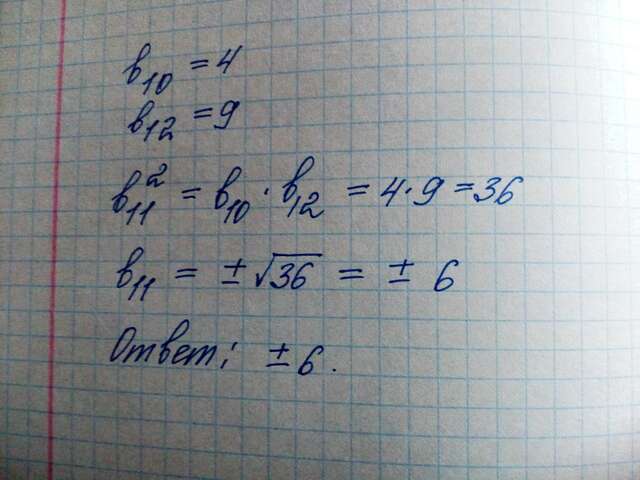 b₁₀ = 4
b₁₂ = 9
b₁₁² = b₁₀ · b₁₂ = 4 · 9 = 36
b₁₁ = ± √36 = ± 6
Ответ: ± 6.